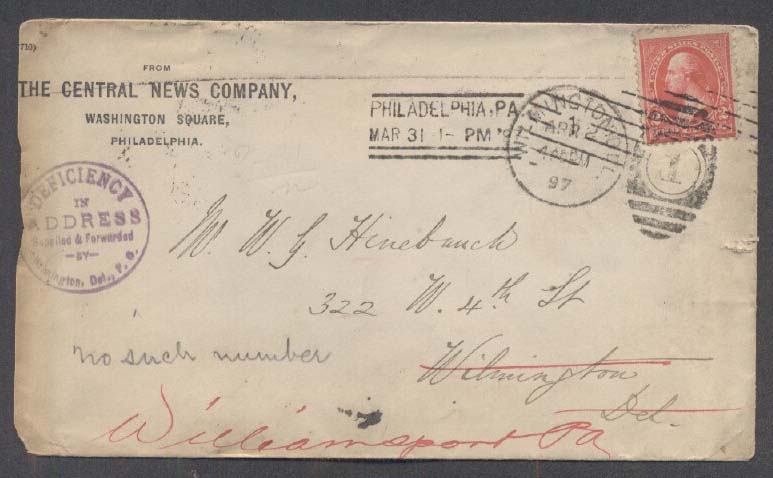 710)
FROM
THE CENTRAL NEWS COMPANY,
WASHINGTON SQUARE,
PHILADELPHIA.
PHILADELPHIA, PA.
MAR 31 1- PM '9
WILMINGTON DEL.
APR 2
PM
97
UNITED STATES POSTAGE
1
DEFICIENCY
IN
ADDRESS
Supplied & Forwarded
-BY-
Wilmington, Del., P. O.
Mr. W. G. Hinebauch
322 W. 4th St
Wilmington
Del.
no such number
Williamsport Pa